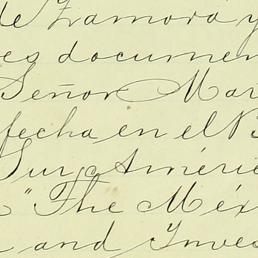 de Zamora y
es documen
Señor Mar
fecha en el B
Sur Améri
"The Méx
and Inves